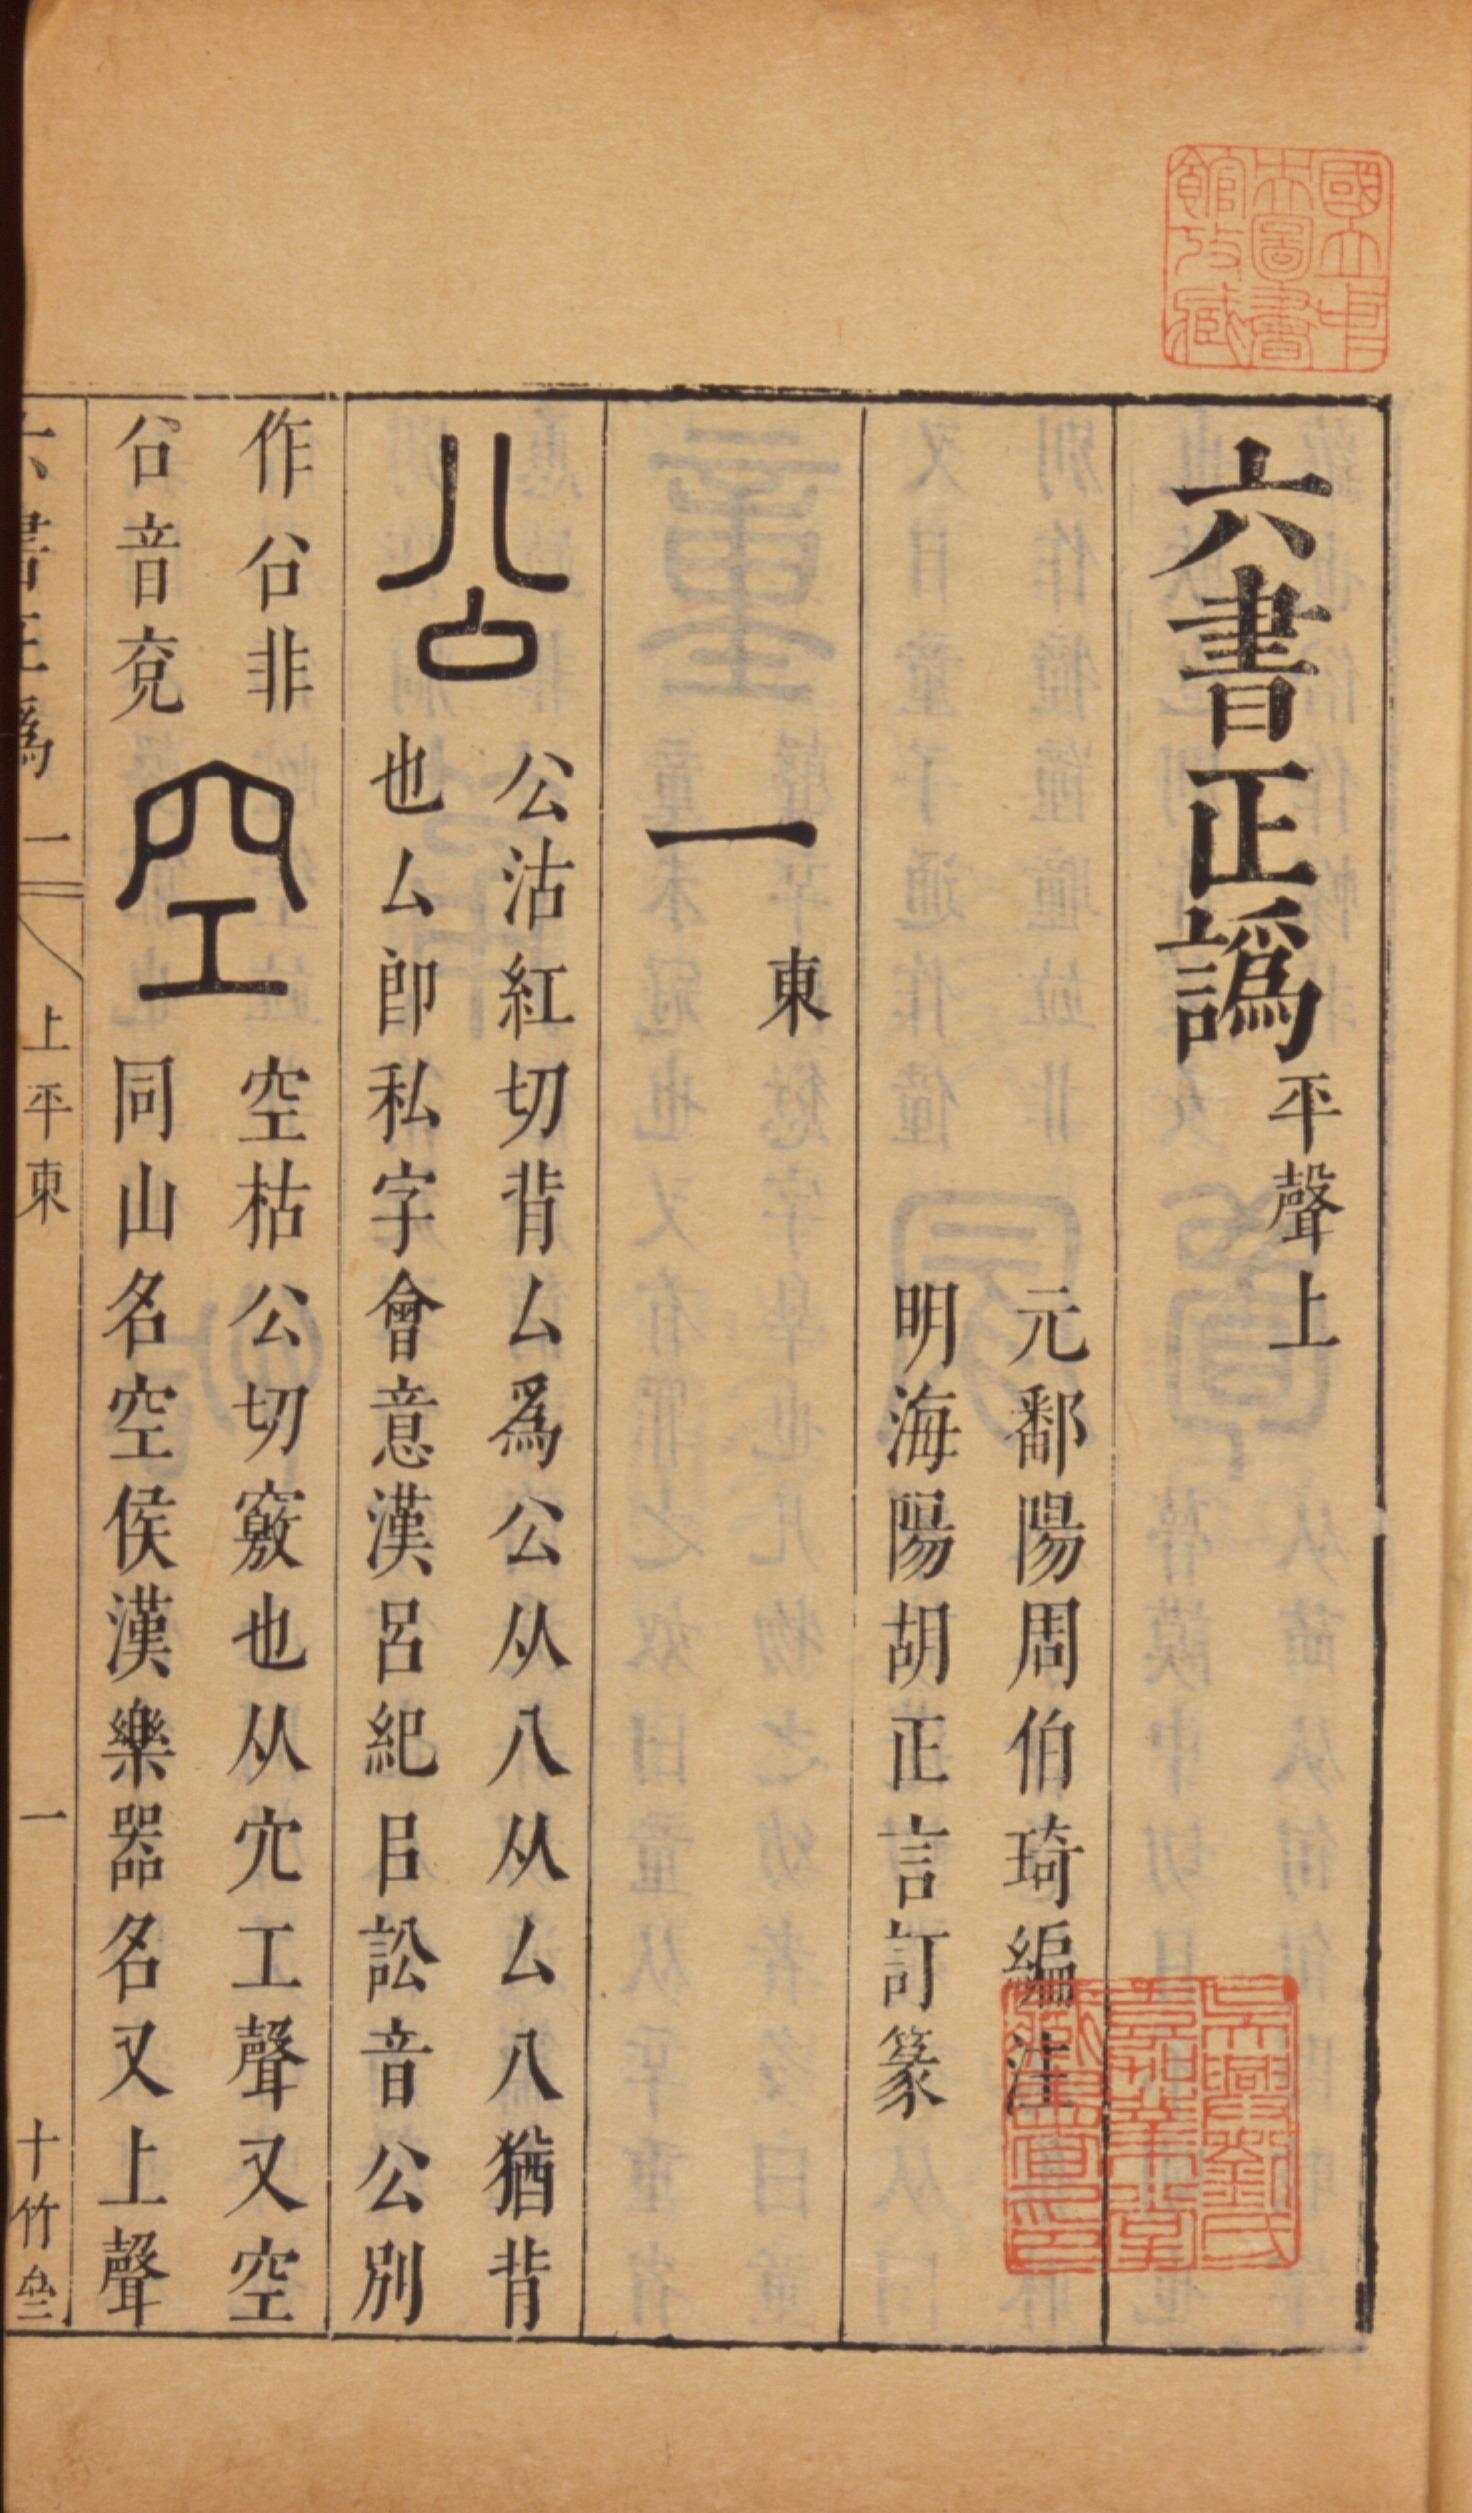 國立中央圖書館收藏
六書正譌 平聲上
元鄱陽周伯琦編注
明海陽胡正言訂篆
一東
公 公沽紅切背厶爲公从八从厶八猶背
也厶卽私字會意漢呂紀㠯訟音公別
作㕣非
㕣音兗
空 空枯公切竅也从穴工聲又空
同山名空侯漢樂器名又上聲
六書正譌 一
上平東
一
十竹
吳興劉氏嘉業堂藏書印